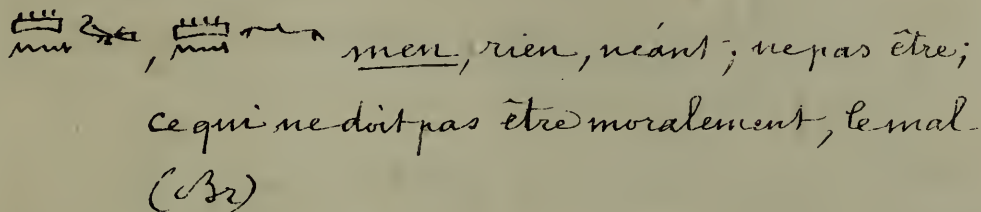 𓏠𓈖𓅪, 𓏠𓈖𓂜 men, rien, néant; ne pas être;
ce qui ne doit pas être moralement, le mal.
(Br)